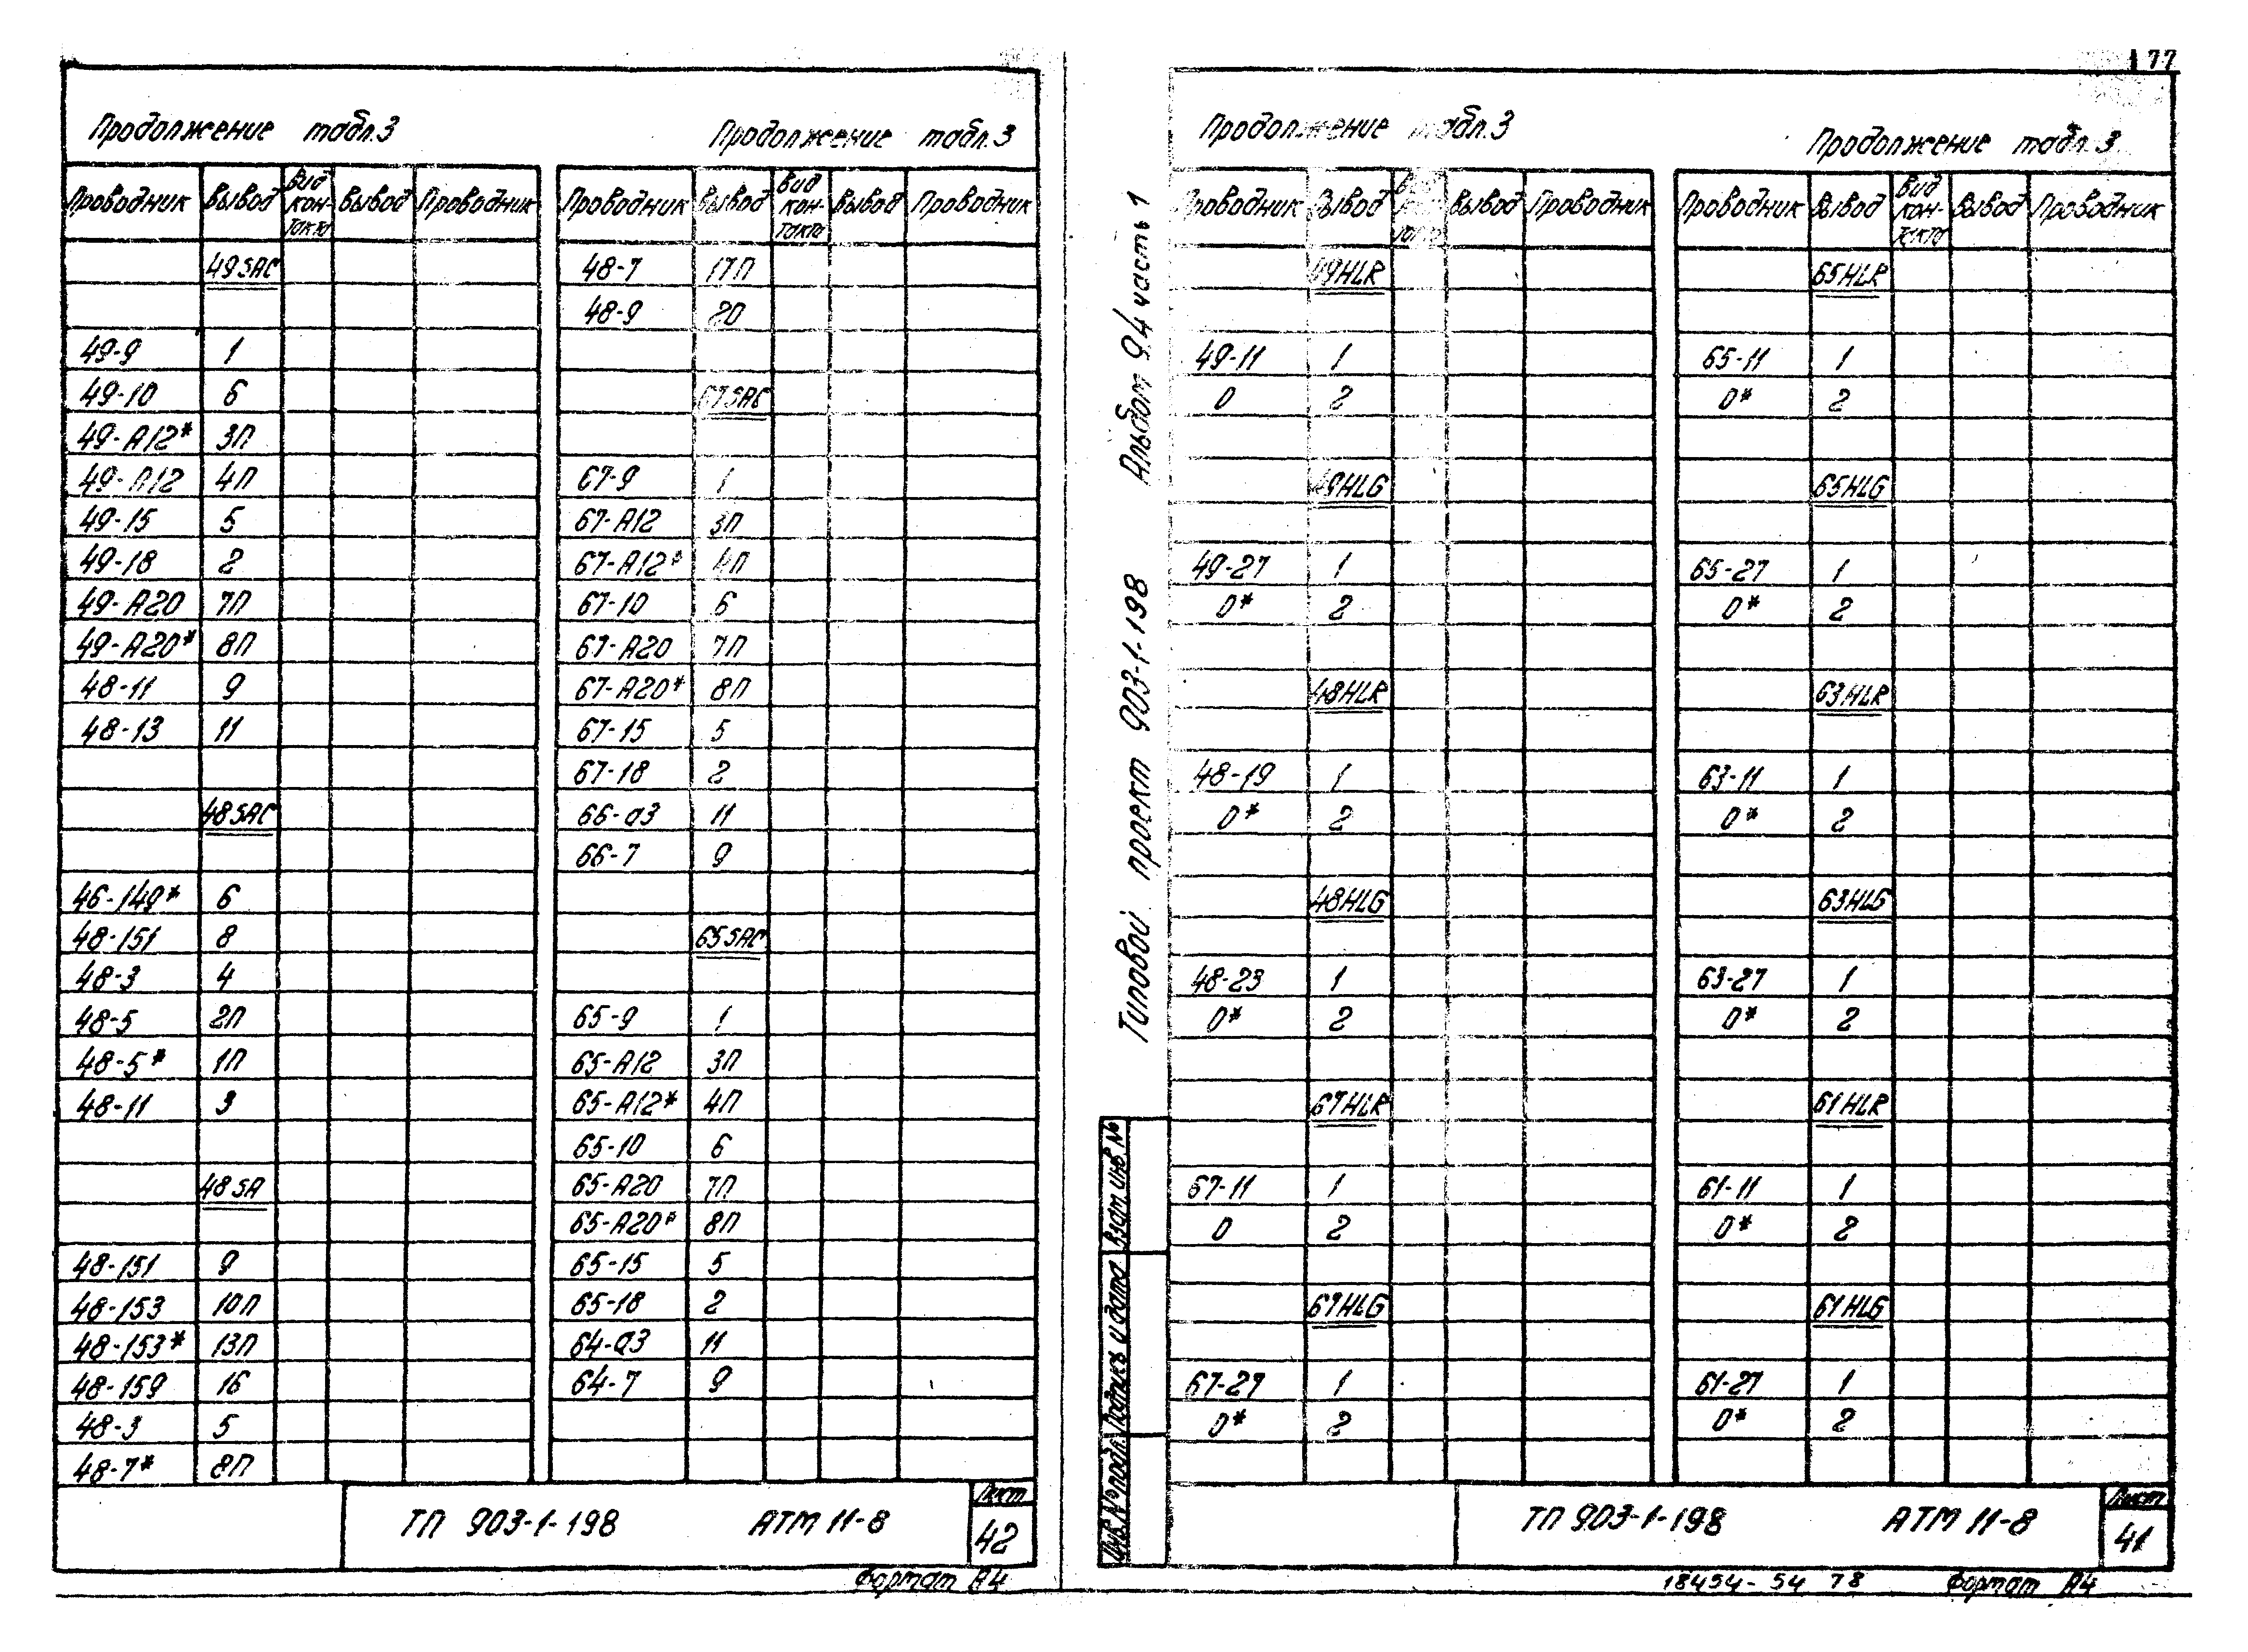 177
Продолжение табл.3
Продолжение табл.3
Проводник Вывод Вид кон- такта Вывод Проводник
Проводник Вывод Вид кон- такта Вывод Проводник
49SAC
49-9 1
49-10 6
49-А12* 3П
49-А12 4П
49-15 5
49-18 2
49-А20 7П
49-А20* 8П
48-11 9
48-13 11
48SAC
46-149* 6
48-151 8
48-3 4
48-5 2П
48-5* 1П
48-11 3
48SA
48-151 9
48-153 10П
48-153* 13П
48-159 16
48-3 5
48-7* 8П
48-7 17П
48-9 20
67SAC
67-9 1
67-А12 3П
67-А12* 4П
67-10 6
67-А20 7П
67-А20* 8П
67-15 5
67-18 2
66-а3 11
66-7 9
65SAC
65-9 1
65-А12 3П
65-А12* 4П
65-10 6
65-А20 7П
65-А20* 8П
65-15 5
65-18 2
64-а3 11
64-7 9
ТП 903-1-198 АТМ 11-8
Лист
42
Формат А4
Типовой проект 903-1-198 Альбом 9.4 часть 1
Взам. инв. №
Подпись и дата
Инв.№ подл.
Продолжение табл.3
Продолжение табл.3
Проводник Вывод Вид кон- такта Вывод Проводник
Проводник Вывод Вид кон- такта Вывод Проводник
49HLR
49-11 1
0 2
49HLG
49-27 1
0* 2
48HLR
48-19 1
0* 2
48HLG
48-23 1
0* 2
67HLR
67-11 1
0 2
67HLG
67-27 1
0* 2
65HLR
65-11 1
0* 2
65HLG
65-27 1
0* 2
63HLR
63-11 1
0* 2
63HLG
63-27 1
0* 2
61HLR
61-11 1
0* 2
61HLG
61-27 1
0* 2
ТП 903-1-198 АТМ 11-8
Лист
41
18454-54 78 Формат А4